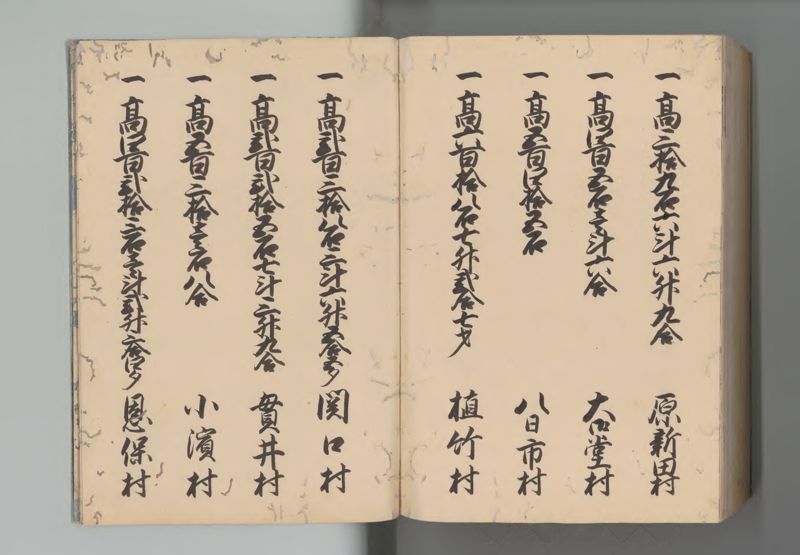 一高三拾九石六斗六升九合 原新田村
一高四百五石壱斗六合 大口堂村
一高五百四拾五石 八日市村
一高六百拾八石七升弐合七夕 植竹村
一高弐百三拾八石三斗六升五合五夕 関口村
一高弐百弐拾五石七斗三升九合 貫井村
一高五百三拾壱石八合 小濱村
一高四百弐拾三石壱斗弐升六合四夕 恩保村